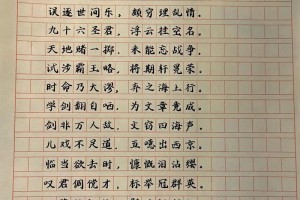 误逐世间乐，颇穷理乱情。
九十六圣君，浮云挂空名。
天地赌一掷，未能忘战争。
试涉霸王略，将期轩冕荣。
时命乃大谬，弃之海上行。
学剑翻自哂，为文竟何成。
剑非万人敌，文窃四海声。
儿戏不足道，五噫出西京。
临当欲去时，慷慨泪沾缨。
叹君倜傥才，标举冠群英。